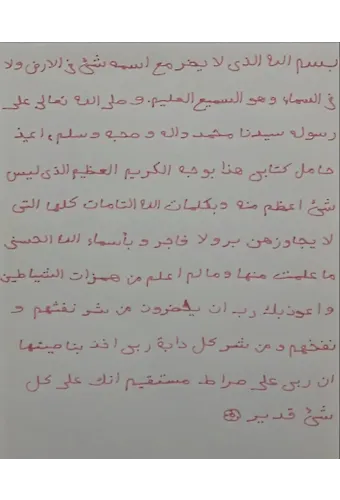 بسم الله الذى لا يضر مع اسمه شئ فى الارض ولا
فى السماء وهو السميع العليم. و صلى الله تعالى على
رسوله سيدنا محمد واله و صحبه وسلم، اعيذ
حامل كتابى هذا بوجه الكريم العظيم الذى ليس
شئ اعظم منه وبكلمات الله التامات كلها التى
لا يجاوزهن بر ولا فاجر و بأسماء الله الحسنى
ما علمت منها و ما لم اعلم من همزات الشياطين
و اعوذ بك رب ان يحضرون من شر نفثهم و
نفخهم و من شر كل دابة ربى اخذ بناصيتها
ان ربى على صراط مستقيم انك على كل
شئ قدير